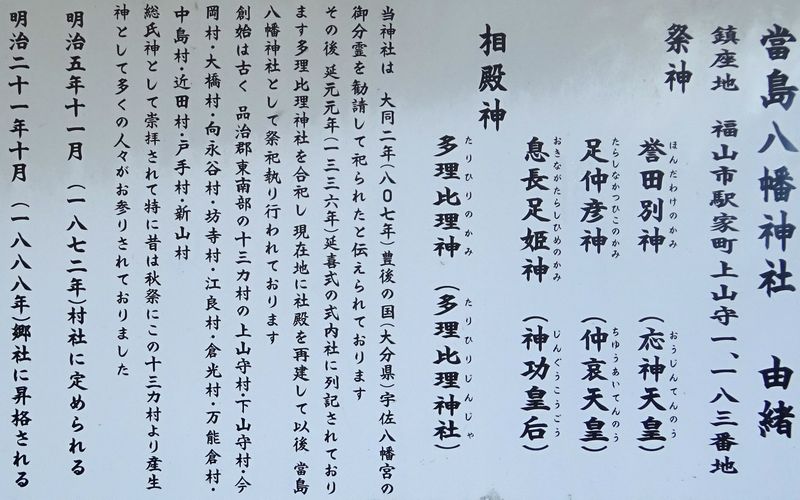 當島八幡神社　由緒
鎮座地　福山市駅家町上山守一、一八三番地
祭神
誉田別神（応神天皇）
ほんだわけのかみ　おうじんてんのう
足仲彦神（仲哀天皇）
たらしなかつひこのかみ　ちゅうあいてんのう
息長足姫神（神功皇后）
おきながたらしひめのかみ　じんぐうこうごう
相殿神
多理比理神（多理比理神社）
たりひりのかみ　たりひりじんじゃ
当神社は　大同二年（八〇七年）豊後の国（大分県）宇佐八幡宮の
御分霊を勧請して祀られたと伝えられております
その後　延元元年（一三三六年）延喜式の式内社に列記されており
ます多理比理神社を合祀し　現在地に社殿を再建して以後　當島
八幡神社として祭祀執り行われております
創始は古く　品治郡東南部の十三カ村の上山守村・下山守村・今
岡村・大橋村・向永谷村・坊寺村・江良村・倉光村・万能倉村・
中島村・近田村・戸手村・新山村
総氏神として崇拝されて特に昔は秋祭にこの十三カ村より産生
神として多くの人々がお参りされておりました
明治五年十一月　（一八七二年）村社に定められる
明治二十一年十月　（一八八八年）郷社に昇格される